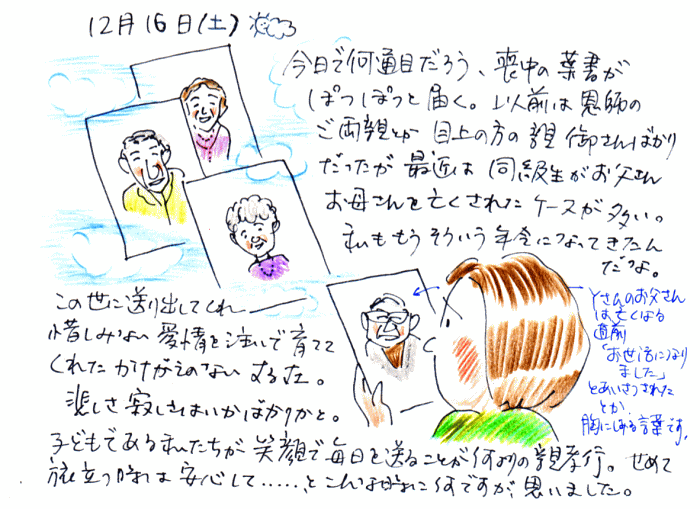 12月16日(土)
今日で何通目だろう、喪中の葉書が
ぽつぽつと届く。以前は恩師の
ご両親とか目上の方の親御さんばかり
だったが最近は同級生がお父さん
お母さんを亡くされたケースが多い。
私ももうそういう年令になってきたん
だなよ。
この世に送り出してくれ
惜しみない愛情を注いで育てて
くれたかけがえのない存在。
悲しさ寂しさはいかばかりかと。
子どもである私たちが笑顔で毎日を送ることが何よりの親孝行。せめて
旅立つ時は安心して……、とこんな時に何ですが思いました。
Yさんのお父さん
は亡くなる
直前
「お世話になり
ました」
とあいさつされた
とか。
胸にしみる言葉です。